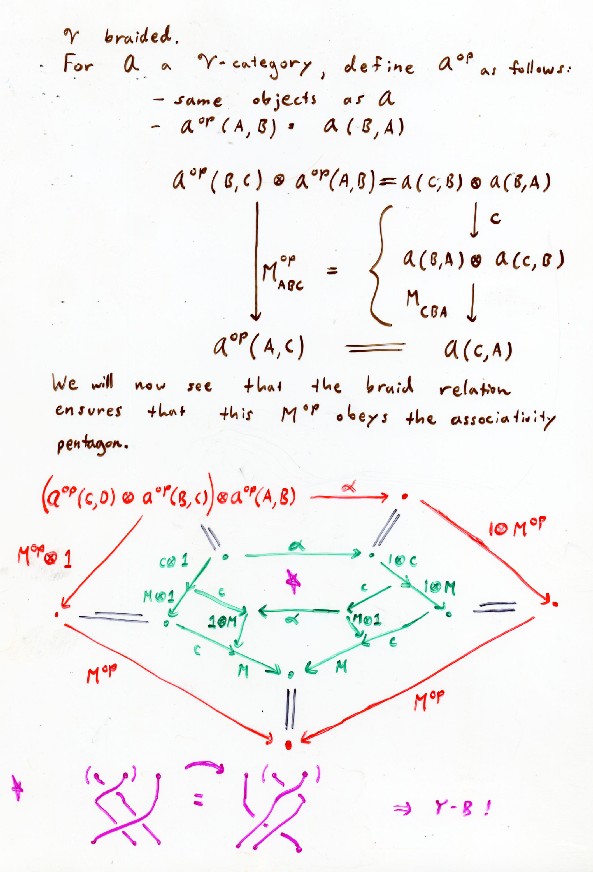 𝒱 braided.
For 𝒜 a 𝒱-category, define 𝒜^op as follows:
- same objects as 𝒜
- 𝒜^op(A,B) = 𝒜(B,A)
𝒜^op(B,C) ⊗ 𝒜^op(A,B) = 𝒜(C,B) ⊗ 𝒜(B,A)
c
𝒜(B,A) ⊗ 𝒜(C,B)
M^op_ABC =
M_CBA
𝒜^op(A,C) = 𝒜(C,A)
We will now see that the braid relation
ensures that this M^op obeys the associativity
pentagon.
(𝒜^op(C,D) ⊗ 𝒜^op(B,C)) ⊗ 𝒜^op(A,B) α
1⊗M^op
M^op⊗1 c⊗1 α 1⊗c
M⊗1 c c 1⊗M
1⊗M α M⊗1
c c
M^op M M M^op
( ) = ( ) ⇒ Y-B!